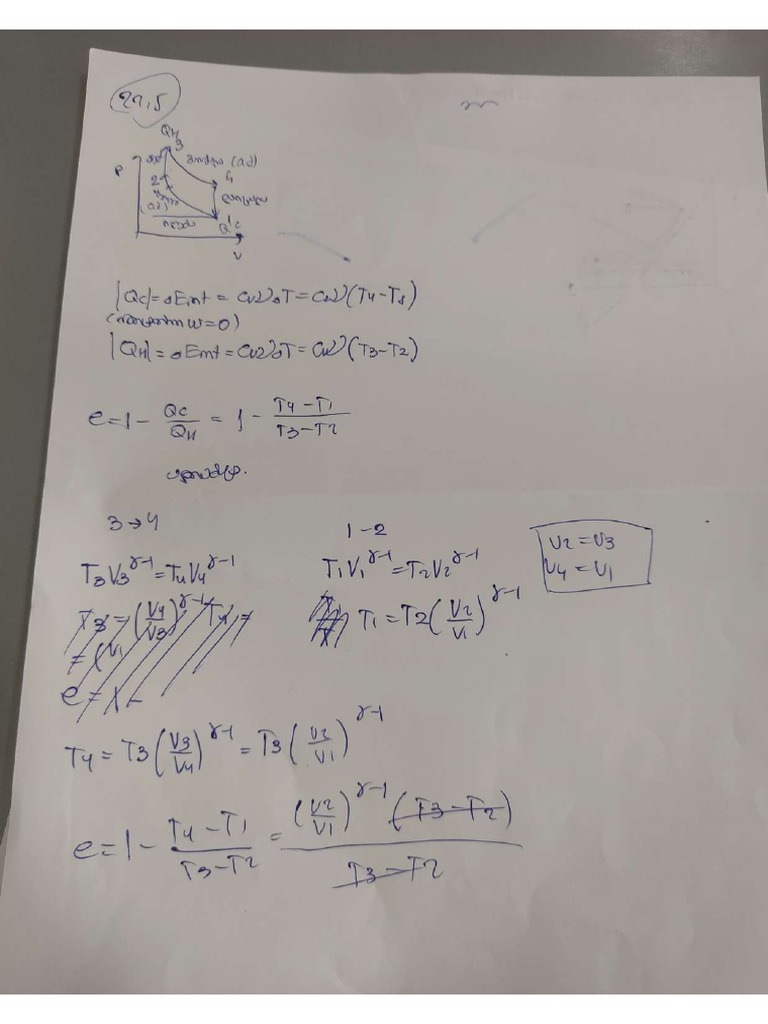 22.5
QH
3
P
2
4
(ad)
(ad)
1
Qc
V
|Qc|=ΔEint = CVνΔT = CVν(T4-T1)
W=0)
|QH|=ΔEint=CVνΔT=CVν(T3-T2)
e=1- Qc/QH = 1- (T4-T1)/(T3-T2)
3→4
1-2
T3V3^γ-1=T4V4^γ-1
T1V1^γ-1=T2V2^γ-1
V2=V3
V4=V1
T3=(V4/V3)^γ-1 T4=
T1=T2(V2/V1)^γ-1
e=1-
T4=T3(V3/V4)^γ-1=T3(V2/V1)^γ-1
e=1- (T4-T1)/(T3-T2) = (V2/V1)^γ-1 (T3-T2)/T3-T2